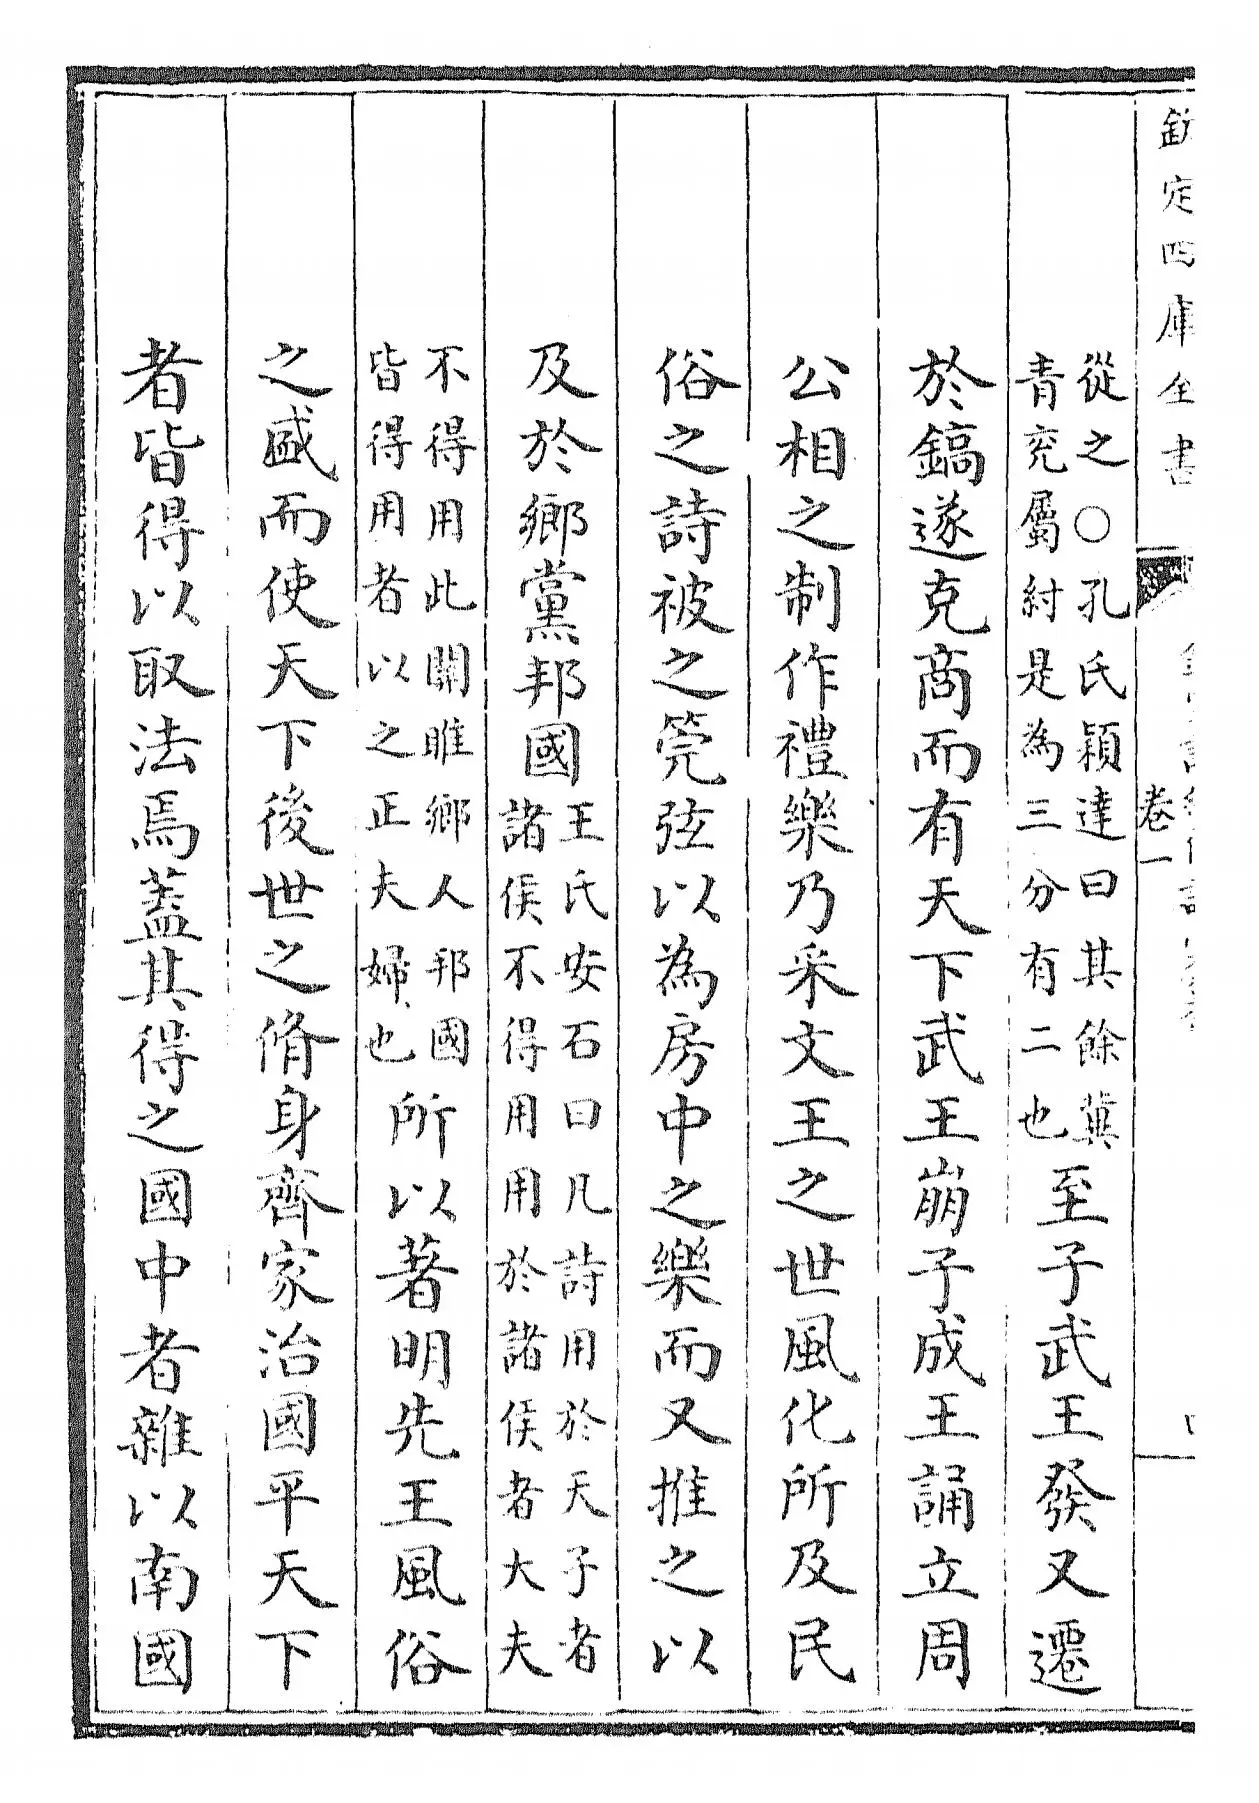 欽定四庫全書
卷一
從之○孔氏穎達曰其餘冀
青兖屬紂是為三分有二也
至子武王發又遷
於鎬遂克商而有天下武王崩子成王誦立周
公相之制作禮樂乃采文王之世風化所及民
俗之詩被之筦弦以為房中之樂而又推之以
及於鄉黨邦國
王氏安石曰凡詩用於天子者
諸侯不得用用於諸侯者大夫
不得用此關雎鄉人邦國
皆得用者以之正夫婦也
所以著明先王風俗
之盛而使天下後世之脩身齊家治國平天下
者皆得以取法焉蓋其得之國中者雜以南國